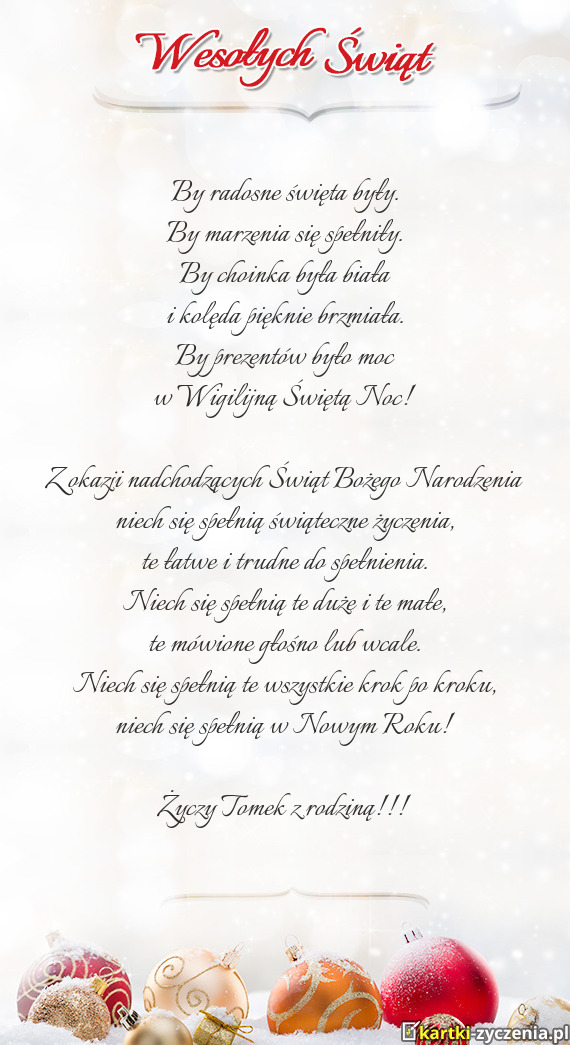 Wesołych Świąt
By radosne święta były.
By marzenia się spełniły.
By choinka była biała
i kolęda pięknie brzmiała.
By prezentów było moc
w Wigilijną Świętą Noc!
Z okazji nadchodzących Świąt Bożego Narodzenia
niech się spełnią świąteczne życzenia,
te łatwe i trudne do spełnienia.
Niech się spełnią te duże i te małe,
te mówione głośno lub wcale.
Niech się spełnią te wszystkie krok po kroku,
niech się spełnią w Nowym Roku!
Życzy Tomek z rodziną!!!
kartki-zyczenia.pl